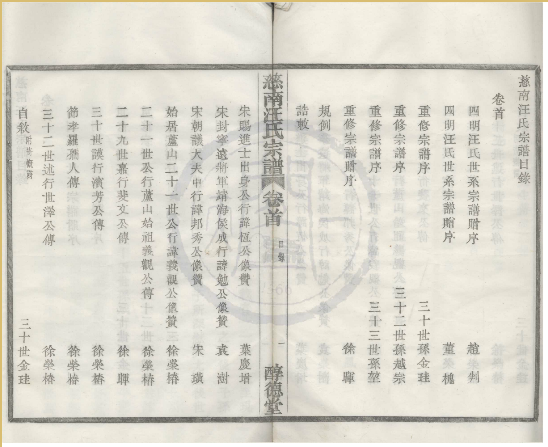 慈南汪氏宗譜目錄
卷首
四明汪氏世系宗譜序 趙 㓨
四明汪氏世系宗譜序 董 槐
重修宗譜序 三十世孫金珪
重修宗譜序 三十二世孫越宗
重修宗譜序 三十三世孫堃
重修宗譜序 徐 暉
規例
誥敕
慈南汪氏宗譜 卷首 目錄 一 醇德堂
宋賜進士出身公行諱恆公像贊 葉慶堉
宋封寧遠將軍靖海侯成行諱勉公像贊 袁 澍
宋朝議大夫中行諱邦秀公像贊 宋 璜
始居蘆山二十一世公行諱義觀公像贊 徐榮椿
二十一世公行蘆山始祖義觀公傳 徐榮椿
二十九世嘉行斐文公傳 徐 暉
三十世謨行濱芳公傳 徐榮椿
節孝羅孺人傳 徐榮椿
三十二世述行世澤公傳 徐榮椿
自敘 三十世金珪